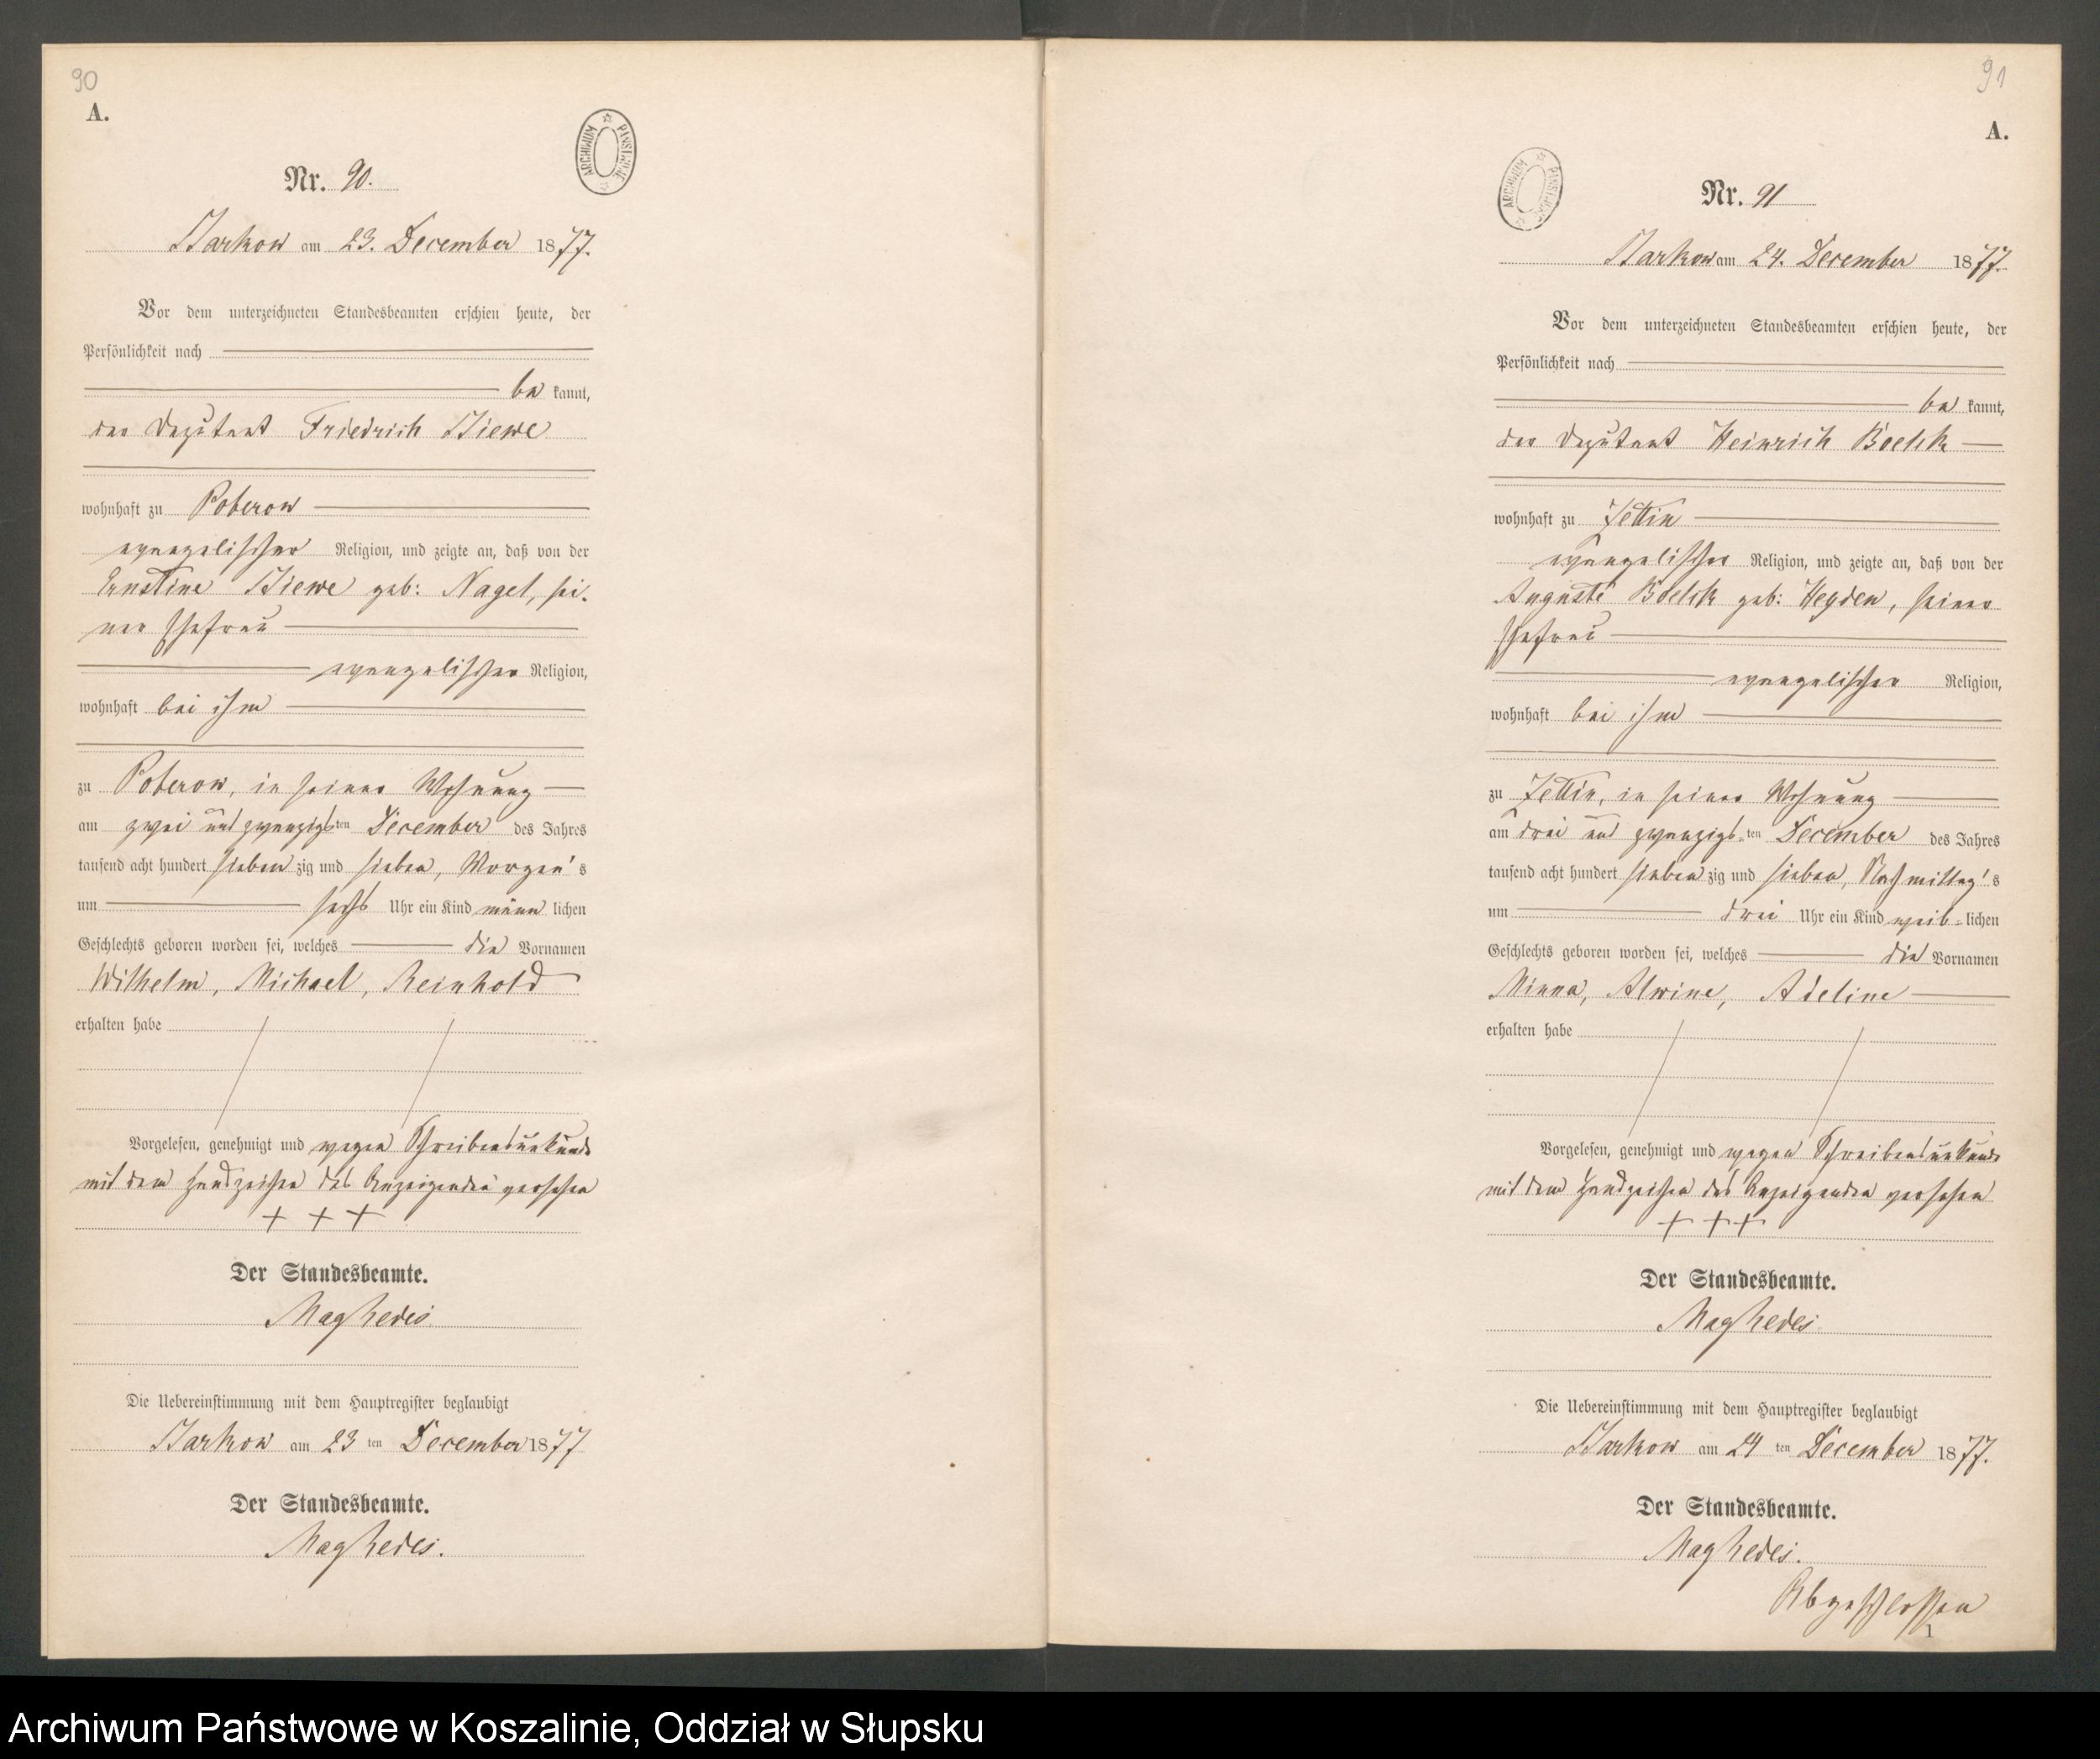 90
A.
ARCHIWUM PAŃSTWOWE
Nr. 90.
Startow am 23. December 1877.
Vor dem unterzeichneten Standesbeamten erschien heute, der
Persönlichkeit nach
be kannt,
der Deputant Friedrich Stiewe
wohnhaft zu Poberow
evangelischer Religion, und zeigte an, daß von der
Ernstine Stiewe geb: Nagel, sei-
ner Ehefrau
evangelischer Religion,
wohnhaft bei ihm
zu Poberow, in seiner Wohnung
am zwei und zwanzigsten December des Jahres
tausend acht hundert siebenzig und sieben, Morgen's
um sechs Uhr ein Kind männlichen
Geschlechts geboren worden sei, welches die Vornamen
Wilhelm, Michael, Reinhold
erhalten habe
Vorgelesen, genehmigt und wegen Schreibensunkunde
mit dem Handzeichen des Anzeigenden versehen
+ + +
Der Standesbeamte.
Die Uebereinstimmung mit dem Hauptregister beglaubigt
am 23 ten December 1877
Der Standesbeamte.
91
A.
ARCHIWUM PAŃSTWOWE
Nr. 91
am 24. December 1877.
Vor dem unterzeichneten Standesbeamten erschien heute, der
Persönlichkeit nach
be kannt,
der Deputant Heinrich Boelck
wohnhaft zu Zettin
evangelischer Religion, und zeigte an, daß von der
Auguste Boelck geb: Heyden, seiner
Ehefrau
evangelischer Religion,
wohnhaft bei ihm
zu Zettin, in seiner Wohnung
am drei und zwanzigsten December des Jahres
tausend acht hundert siebenzig und sieben, Nachmittag's
um drei Uhr ein Kind weib-lichen
Geschlechts geboren worden sei, welches die Vornamen
Minna, Alwine, Adeline
erhalten habe
Vorgelesen, genehmigt und wegen Schreibensunkunde
mit dem Handzeichen des Anzeigenden versehen
+ + +
Der Standesbeamte.
Die Uebereinstimmung mit dem Hauptregister beglaubigt
am 24 ten December 1877.
Der Standesbeamte.
Abgeschlossen
1
Archiwum Państwowe w Koszalinie, Oddział w Słupsku